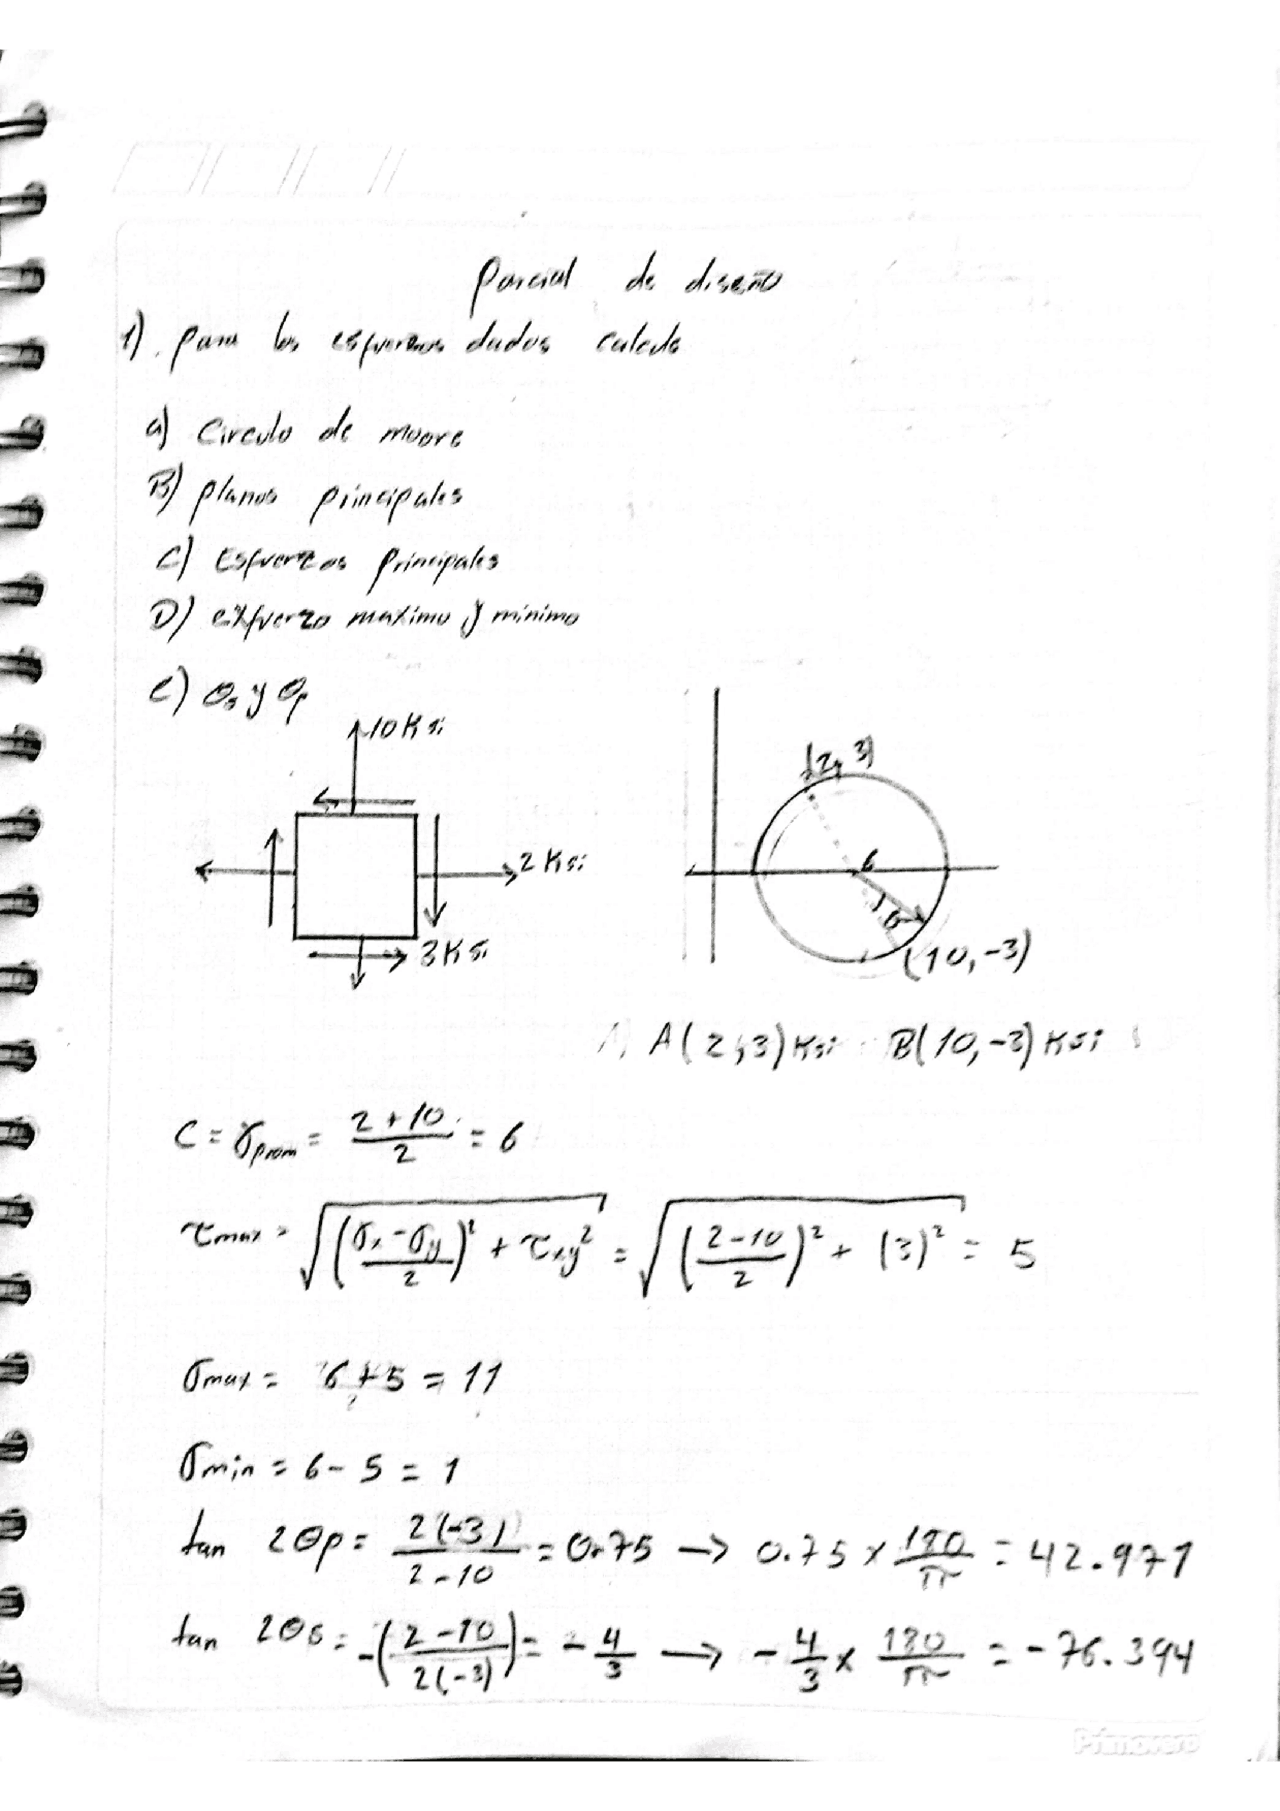 Parcial de diseño
1). para los esfuerzos dados calcule
a) Circulo de moore
B) planos principales
C) Esfuerzos principales
D) exfuerzo maximo y minimo
e) θs y θp
10 Ksi
2 Ksi
3 Ksi
(2, 3)
6
(10, -3)
A(2,3) Ksi B(10,-3) Ksi
C = σprom = (2+10)/2 = 6
τmax = √((σx-σy)/2)² + τxy² = √((2-10)/2)² + (3)² = 5
σmax = 6+5 = 11
σmin = 6-5 = 1
tan 2θp = 2(-3)/2-10 = 0.75 → 0.75 × 180/π = 42.971
tan 2θs = -(2-10/2(-3)) = -4/3 → -4/3 × 180/π = -76.394
Primavera